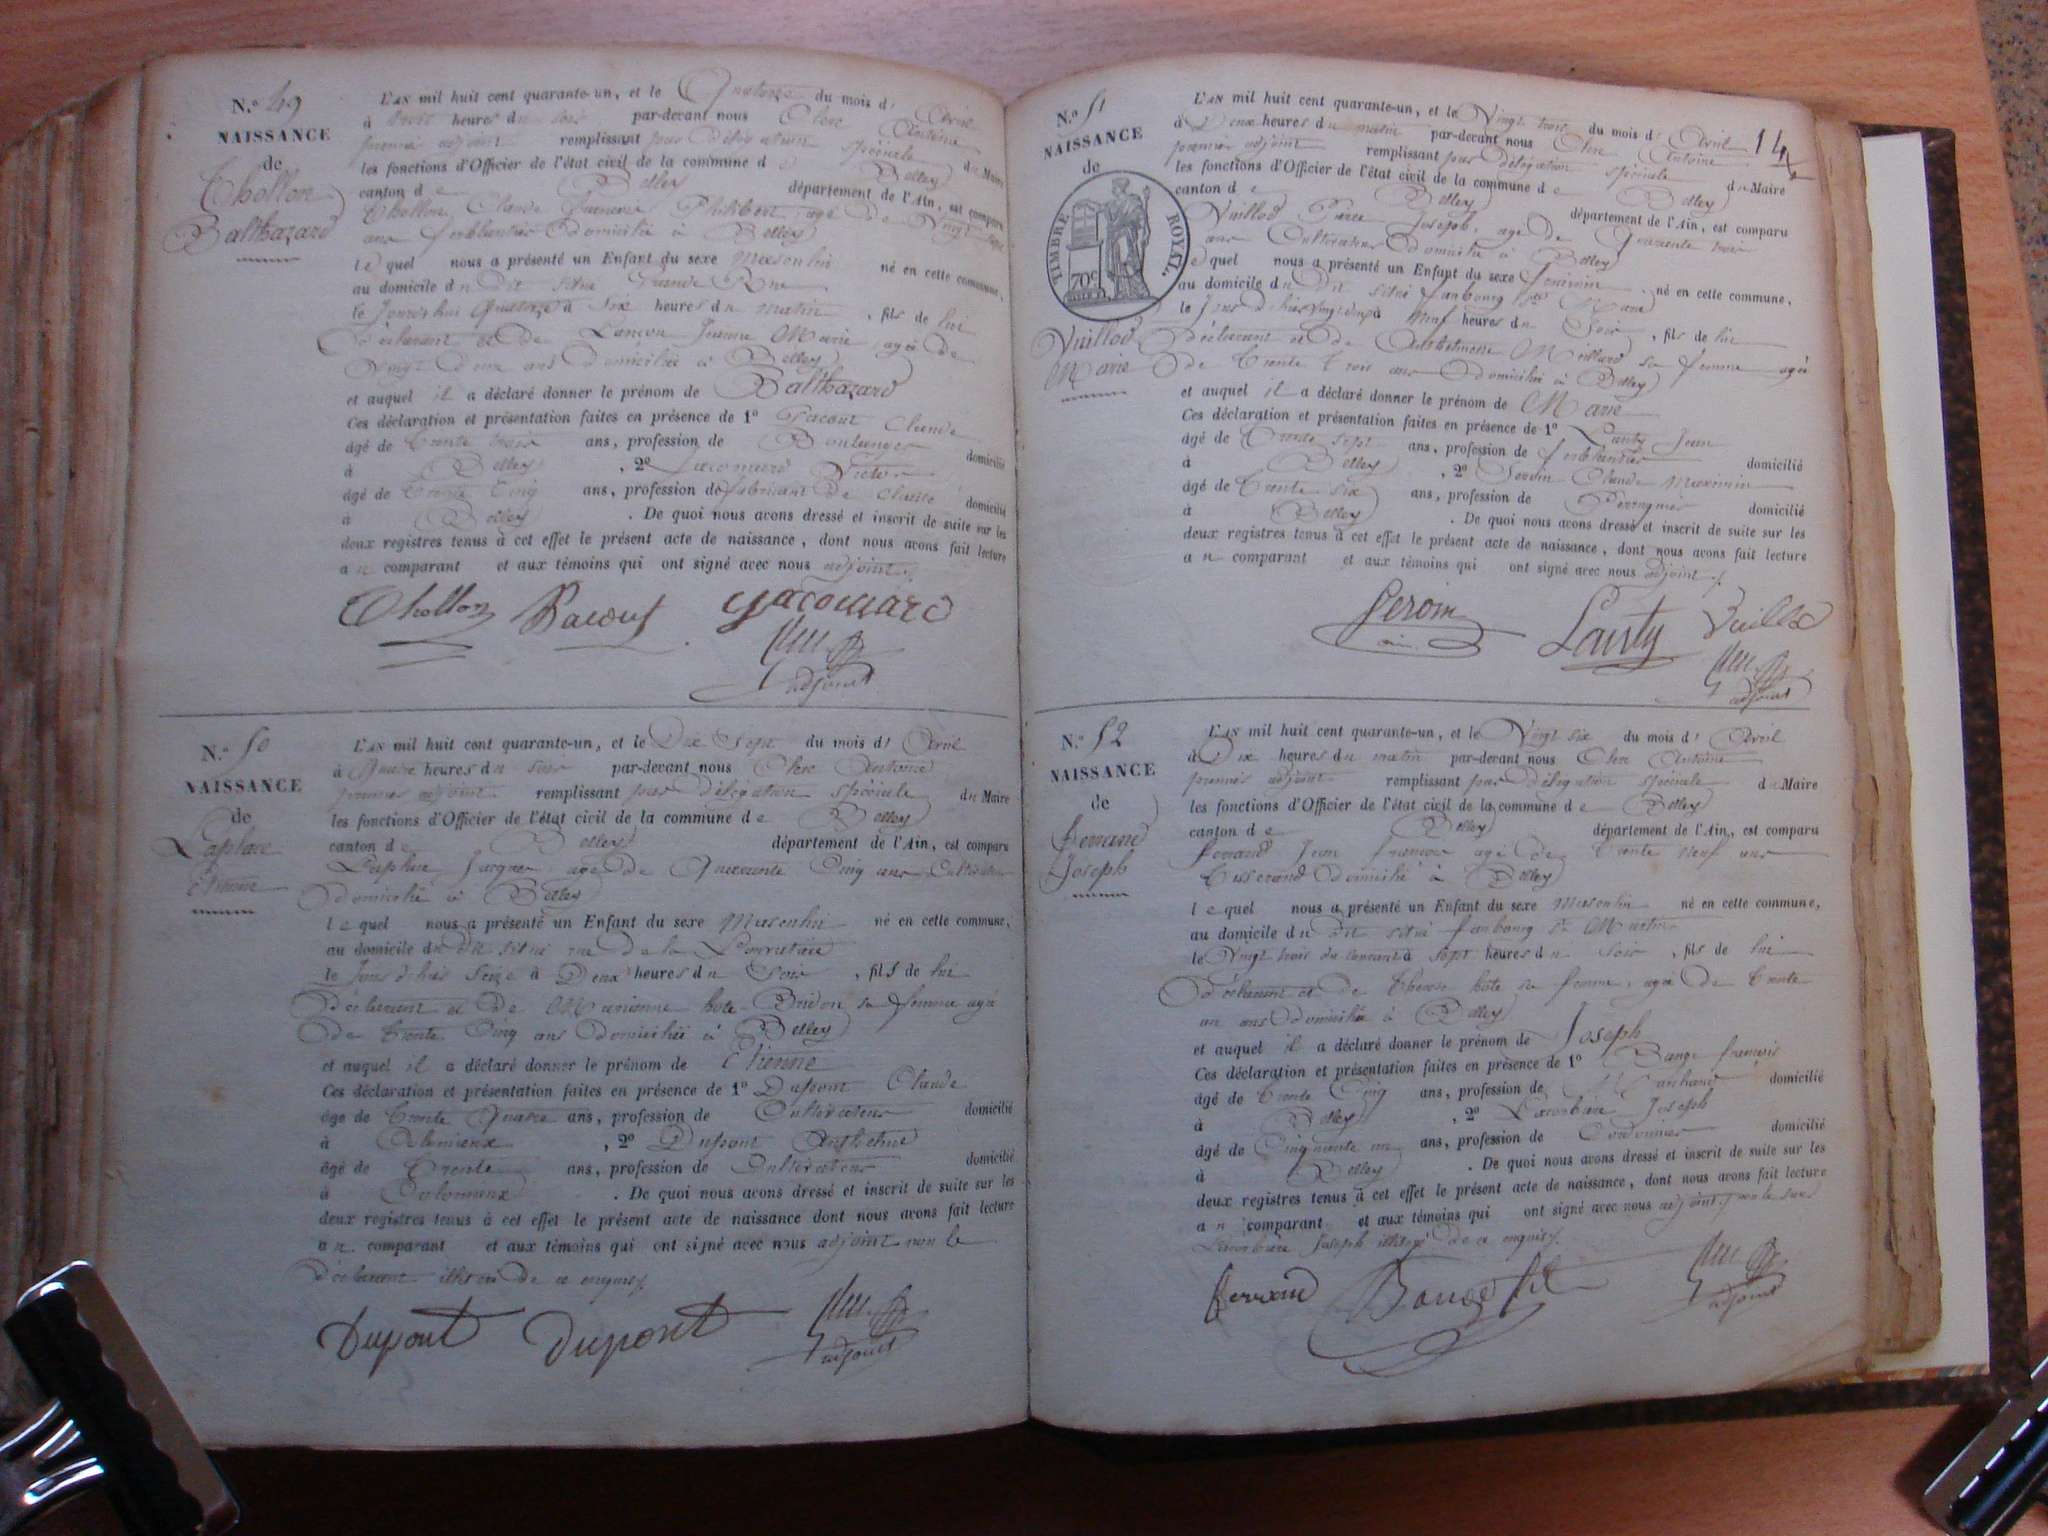 N.º 49
NAISSANCE
de
Chollon
Balthazard
L'AN mil huit cent quarante-un, et le Quatorze du mois d' Avril
à trois heures du soir par-devant nous Clerc Antoine
premier adjoint remplissant par délégation spéciale du Maire
les fonctions d'Officier de l'état civil de la commune de Belley
canton de Belley département de l'Ain, est comparu
Chollon Claude Philibert, agé de Vingt
ans ferblantier Domicilié à Belley
lequel nous a présenté un Enfant du sexe Masculin né en cette commune,
au domicile du Dit situé Grande Rue
le Jourd'hui Quatorze à Six heures du matin, fils de lui
Déclarant et de Lançon Jeanne Marie, agée de
Vingt Deux ans Domiciliée à Belley
et auquel il a déclaré donner le prénom de Balthazard
Ces déclaration et présentation faites en présence de 1º Pacout Claude
âgé de trente trois ans, profession de Boulanger domicilié
à Belley, 2º Jacomard Victor
âgé de trente Cinq ans, profession de fabricant de domicilié
à Belley. De quoi nous avons dressé et inscrit de suite sur les
deux registres tenus à cet effet le présent acte de naissance, dont nous avons fait lecture
au comparant et aux témoins qui ont signé avec nous adjoint
Chollon Pacout Jacomard
adjoint
N.º 50
NAISSANCE
de
Laplace
Etienne
L'AN mil huit cent quarante-un, et le Dix Sept du mois d' Avril
à Quatre heures du soir par-devant nous Clerc Antoine
premier adjoint remplissant par Délégation spéciale du Maire
les fonctions d'Officier de l'état civil de la commune de Belley
canton de Belley département de l'Ain, est comparu
Laplace Jacques, agé de Quarante Cinq ans, Cultivateur
Domicilié à Belley
lequel nous a présenté un Enfant du sexe Masculin né en cette commune,
au domicile du Dit situé rue de la
le Jour d'hier Seize à Deux heures du Soir, fils de lui
Déclarant et de Marianne Bridon sa femme agée
De trente Cinq ans Domiciliée à Belley
et auquel il a déclaré donner le prénom de Etienne
Ces déclaration et présentation faites en présence de 1º Dupont Claude
âgé de trente Quatre ans, profession de Cultivateur domicilié
à Colomieux, 2º Dupont Anthelme
âgé de Trente ans, profession de Cultivateur domicilié
à Colomieux. De quoi nous avons dressé et inscrit de suite sur les
deux registres tenus à cet effet le présent acte de naissance dont nous avons fait lecture
au comparant et aux témoins qui ont signé avec nous adjoint non le
déclarant illitéré de ce enquis
Dupont Dupont
adjoint
14
N.º 51
NAISSANCE
de
TIMBRE ROYAL.
70c
Vuillod
Marie
L'AN mil huit cent quarante-un, et le Vingt trois du mois d' Avril
à Deux heures du matin par-devant nous Clerc Antoine
premier adjoint remplissant par délégation spéciale du Maire
les fonctions d'Officier de l'état civil de la commune de Belley
canton de Belley département de l'Ain, est comparu
Vuillod Pierre Joseph, agé de Quarante trois
ans Cultivateur Domicilié à Belley
lequel nous a présenté un Enfant du sexe féminin né en cette commune,
au domicile du Dit situé faubourg
le Jour d'hier vingt deux à Neuf heures du Soir, fils de lui
Déclarant et de Anthelmette Meillard sa femme agée
De Trente trois ans Domiciliée à Belley
et auquel il a déclaré donner le prénom de Marie
Ces déclaration et présentation faites en présence de 1º Lauty Jean
âgé de Trente Sept ans, profession de ferblantier domicilié
à Belley, 2º Seroin Claude Maximin
âgé de Trente Six ans, profession de Perruquier domicilié
à Belley. De quoi nous avons dressé et inscrit de suite sur les
deux registres tenus à cet effet le présent acte de naissance, dont nous avons fait lecture
au comparant et aux témoins qui ont signé avec nous adjoint
Seroin Lauty Vuillod
adjoint
N.º 52
NAISSANCE
de
Ferrand
Joseph
L'AN mil huit cent quarante-un, et le Vingt six du mois d' Avril
à Dix heures du matin par-devant nous Clerc Antoine
premier adjoint remplissant par Délégation spéciale du Maire
les fonctions d'Officier de l'état civil de la commune de Belley
canton de Belley département de l'Ain, est comparu
ferrand Jean francois agé de trente neuf ans
Tisserand Domicilié à Belley
lequel nous a présenté un Enfant du sexe masculin né en cette commune,
au domicile du Dit situé faubourg St Martin
le Vingt trois du courant à Sept heures du Soir, fils de lui
Déclarant et de sa femme, agée de Trente
un ans Domiciliée à Belley
et auquel il a déclaré donner le prénom de Joseph
Ces déclaration et présentation faites en présence de 1º francois
âgé de Trente Cinq ans, profession de Marchand domicilié
à Belley, 2º Lavorbière Joseph
âgé de Cinquante un ans, profession de Cordonnier domicilié
à Belley. De quoi nous avons dressé et inscrit de suite sur les
deux registres tenus à cet effet le présent acte de naissance, dont nous avons fait lecture
au comparant et aux témoins qui ont signé avec nous adjoint,
Lavorbière Joseph illitéré de ce enquis
ferrand
adjoint